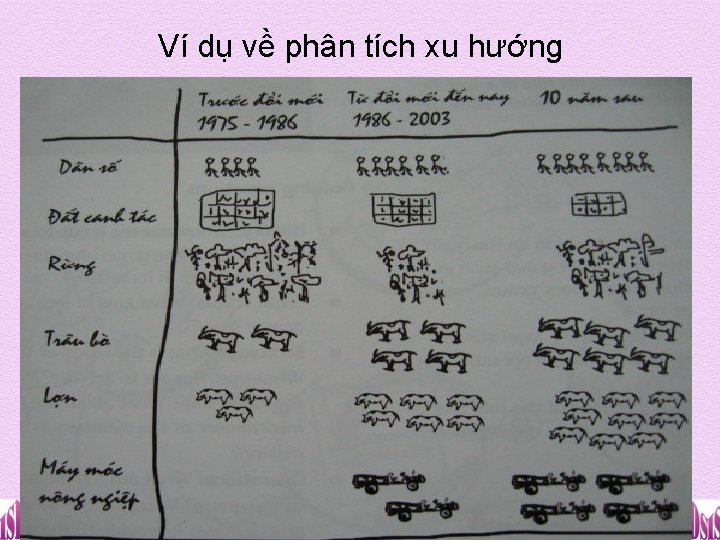 Ví dụ về phân tích xu hướng
Trước đổi mới
1975 - 1986
Từ đổi mới đến nay
1986 - 2003
10 năm sau
Dân số
Đất canh tác
Rừng
Trâu bò
Lợn
Máy móc
nông ngiệp